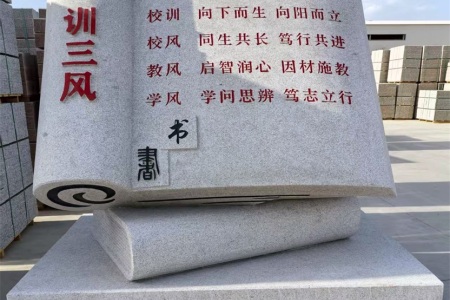 训三风
校训 向下而生 向阳而立
校风 同生共长 笃行共进
教风 启智润心 因材施教
学风 学问思辨 笃志立行
书
書